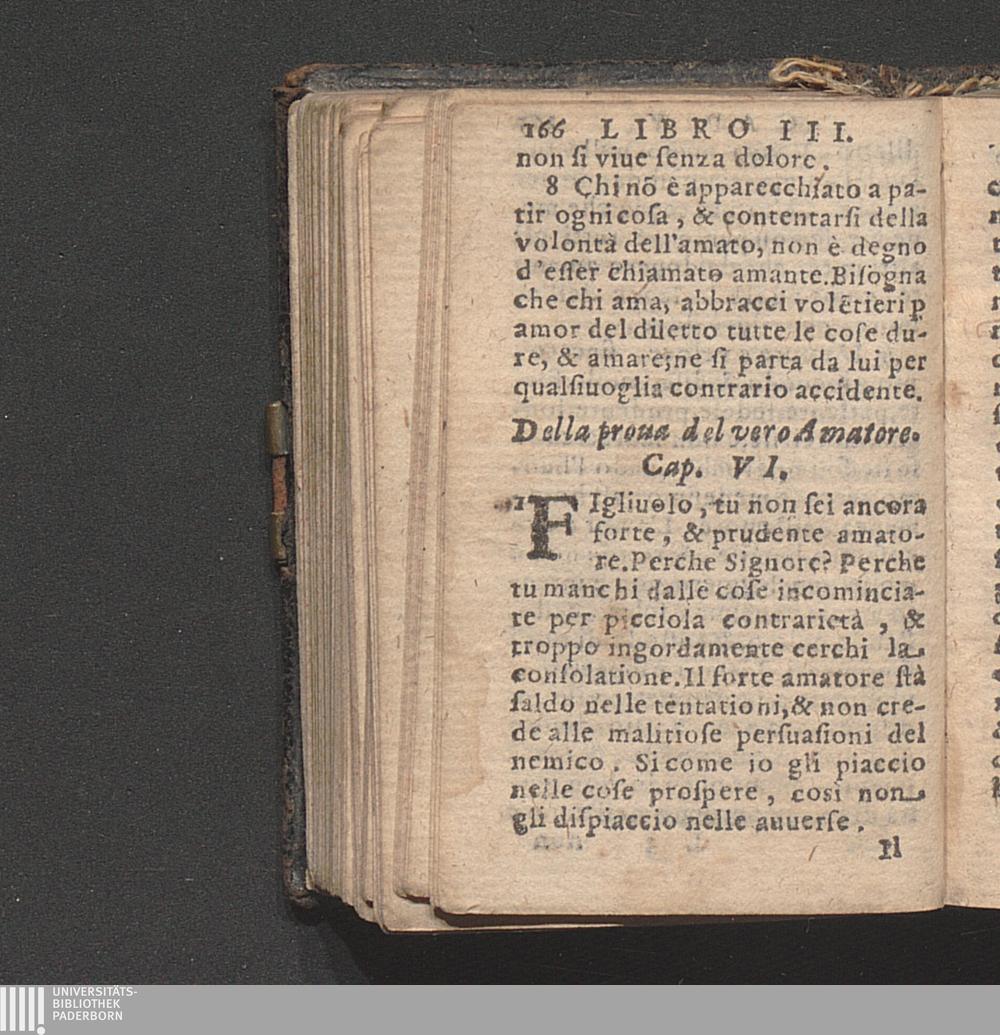 166 LIBRO III.
non ſi viue ſenza dolore.
8 Chi nō è apparecchiato a pa-
tir ogni coſa, & contentarſi della
volontà dell'amato, non è degno
d'eſſer chiamato amante. Biſogna
che chi ama, abbracci volētieri ꝑ
amor del diletto tutte le coſe du-
re, & amare; ne ſi parta da lui per
qualſiuoglia contrario accidente.
Della proua del vero Amatore.
Cap. VI.
1 FIgliuolo, tu non ſei ancora
forte, & prudente amato-
re. Perche Signore? Perche
tu manchi dalle coſe incomincia-
te per picciola contrarietà, &
troppo ingordamente cerchi la
conſolatione. Il forte amatore ſtà
ſaldo nelle tentationi, & non cre-
de alle malitioſe perſuaſioni del
nemico. Si come io gli piaccio
nelle coſe proſpere, così non
gli diſpiaccio nelle auuerſe.
Il
UNIVERSITÄTS-
BIBLIOTHEK
PADERBORN